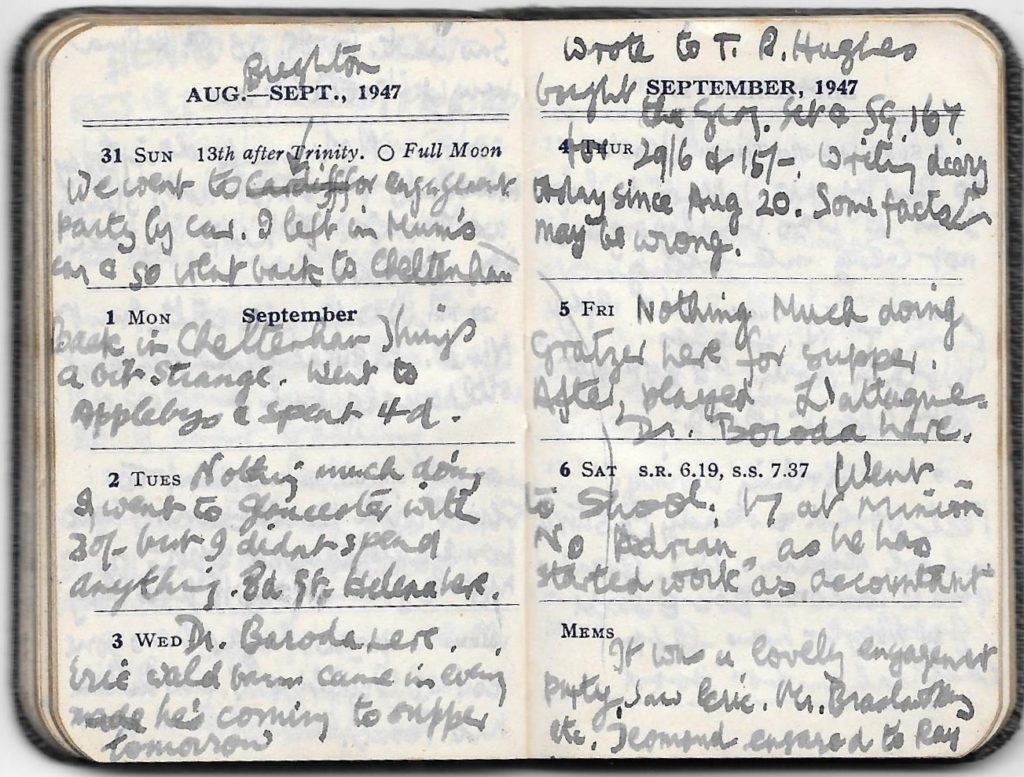 Brighton
AUG.—SEPT., 1947
31 SUN 13th after Trinity. ○ Full Moon
We went to Cardiff for engagement
party by car. I left in Mum's
car & so went back to Cheltenham
1 MON September
Back in Cheltenham Things
a bit strange. Went to
Applebys & spent 4d.
2 TUES Nothing much doing
I went to Gloucester with
30/- but I didnt spend
anything. Bd St. Helena here.
3 WED Dr. Baroda here.
Eric came in every
made he's coming to supper
tomorrow
Wrote to T. R. Hughes
bought SEPTEMBER, 1947
the Geog. Set & SG 167
4 THUR for 29/6 & 15/- Writing diary
today since Aug 20. Some facts
may be wrong.
5 FRI Nothing Much doing
Gratzer here for supper.
After, played L'attaque.
Dr. Boroda here.
6 SAT S.R. 6.19, S.S. 7.37 Went
to Shool. 17 at Minion
No Adrian, as he has
started work as accountant
MEMS
It was a lovely engagement
party. Saw Eric. Mr.
etc. Desmond engaged to Ray